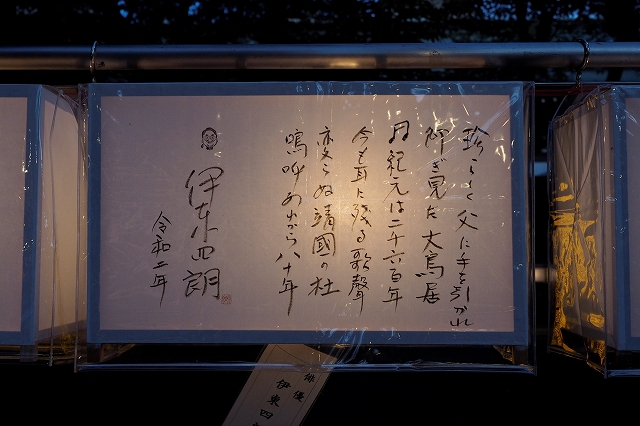 珍らしく父に手を引かれ
仰ぎ見た大鳥居
♬紀元は二千六百年
今も耳に残る歌聲
変らぬ靖國の杜
嗚呼あれから八十年
伊东四朗
令和二年
俳優
伊東四